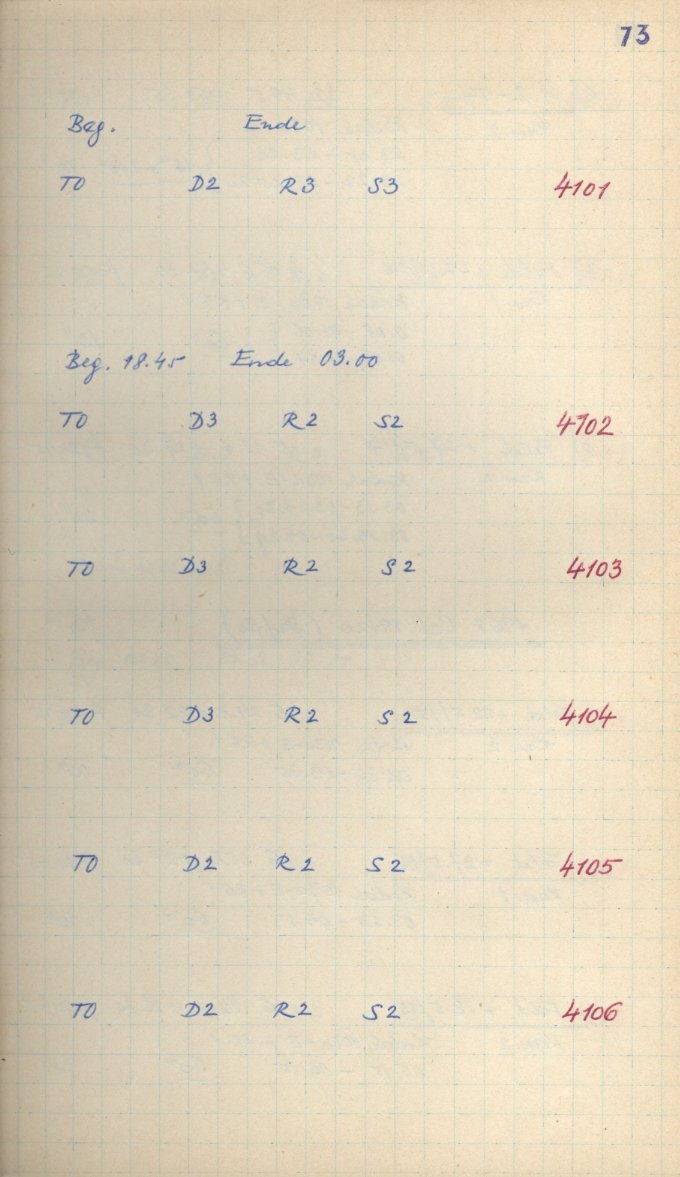 73
Beg. Ende
T0 D2 R3 S3 4101
Beg. 18.45 Ende 03.00
T0 D3 R2 S2 4102
T0 D3 R2 S2 4103
T0 D3 R2 S2 4104
T0 D2 R2 S2 4105
T0 D2 R2 S2 4106